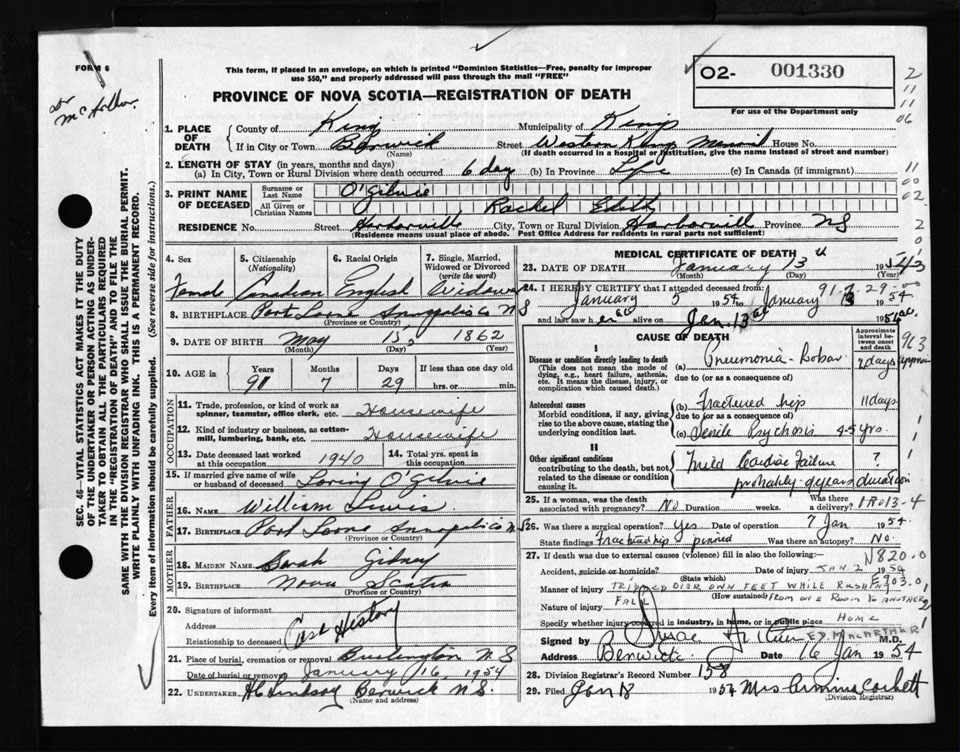 FORM 6
Dr McArthur.
This form, if placed in an envelope, on which is printed "Dominion Statistics—Free, penalty for improper
use $50," and properly addressed will pass through the mail "FREE"
O2- 001330
For use of the Department only
2
11
11
06
PROVINCE OF NOVA SCOTIA—REGISTRATION OF DEATH
1. PLACE OF DEATH County of Kings Municipality of Kings
If in City or Town Berwick (Name) Street Western Kings Memorial House No.
(If death occurred in a hospital or institution, give the name instead of street and number)
2. LENGTH OF STAY (in years, months and days)
(a) In City, Town or Rural Division where death occurred 6 days (b) In Province Life (c) In Canada (if immigrant)
11
00
02
3. PRINT NAME OF DECEASED Surname or Last Name O'Gilvie
All Given or Christian Names Rachel Edith
RESIDENCE No. Street Harborville City, Town or Rural Division Harborville Province NS
(Residence means usual place of abode. Post Office Address for residents in rural parts not sufficient)
SEC. 46—VITAL STATISTICS ACT MAKES IT THE DUTY
OF THE UNDERTAKER OR PERSON ACTING AS UNDER-
TAKER TO OBTAIN ALL THE PARTICULARS REQUIRED
IN THE "REGISTRATION OF DEATH" AND TO FILE THE
SAME WITH THE DIVISION REGISTRAR WHO SHALL ISSUE THE BURIAL PERMIT.
WRITE PLAINLY WITH UNFADING INK. THIS IS A PERMANENT RECORD.
Every item of information should be carefully supplied. (See reverse side for instructions.)
4. Sex Female
5. Citizenship (Nationality) Canadian
6. Racial Origin English
7. Single, Married, Widowed or Divorced (write the word) Widowed
8. BIRTHPLACE Port Lorne Annapolis Co NS
(Province or Country)
9. DATE OF BIRTH May 15, 1862
(Month) (Day) (Year)
10. AGE in Years Months Days If less than one day old
91 7 29 hrs. or min.
OCCUPATION
11. Trade, profession, or kind of work as
spinner, teamster, office clerk, etc. Housewife
12. Kind of industry or business, as cotton-
mill, lumbering, bank, etc. Housewife
13. Date deceased last worked at this occupation 1940
14. Total yrs. spent in this occupation
15. If married give name of wife or husband of deceased Loring O'Gilvie
FATHER
16. Name William Lewis
17. BIRTHPLACE Port Lorne Annapolis Co NS
(Province or Country)
MOTHER
18. MAIDEN NAME Sarah Gidney
19. BIRTHPLACE Nova Scotia
(Province or Country)
20. Signature of informant
Address Case History
Relationship to deceased
21. Place of burial, cremation or removal Burlington NS
Date of burial or removal January 16, 1954
22. UNDERTAKER Berwick N.S.
(Name and address)
MEDICAL CERTIFICATE OF DEATH
23. DATE OF DEATH January 13th 1954
(Month) (Day) (Year)
24. I HEREBY CERTIFY that I attended deceased from:
91-7-29-00
January 5 1954 to January 13 1954
and last saw her alive on Jan. 13 1954
CAUSE OF DEATH
Approximate interval between onset and death
I
Disease or condition directly leading to death
(This does not mean the mode of
dying, e.g., heart failure, asthenia,
etc. It means the disease, injury, or
complication which caused death.)
(a) Pneumonia - Lobar 2 days approx
due to (or as a consequence of)
Antecedent causes
Morbid conditions, if any, giving
rise to the above cause, stating the
underlying condition last.
(b) Fractured hip 11 days
due to (or as a consequence of)
(c) Senile Psychosis 4-5 yrs.
II
Other significant conditions
contributing to the death, but not
related to the disease or condition
causing it.
Cardiac Failure ?
probably years duration
25. If a woman, was the death associated with pregnancy? No Duration weeks. Was there a delivery?
26. Was there a surgical operation? Yes Date of operation 7 Jan 1954
State findings Fractured hip pinned Was there an autopsy? No.
27. If death was due to external causes (violence) fill in also the following:— N820.0
Accident, suicide or homicide? (State which) Date of injury JAN 2 1954
E903.0
Manner of injury TRIPPED OVER OWN FEET WHILE RUSHING
(How sustained) FROM ONE ROOM TO ANOTHER
Nature of injury FALL
Specify whether injury occurred in industry, in home, or in public place HOME
Signed by E.D. MACARTHUR M.D.
Address Berwick Date 16 Jan 1954
28. Division Registrar's Record Number 158
29. Filed Jan 18 1954 Mrs Armina Corbett
(Division Registrar)